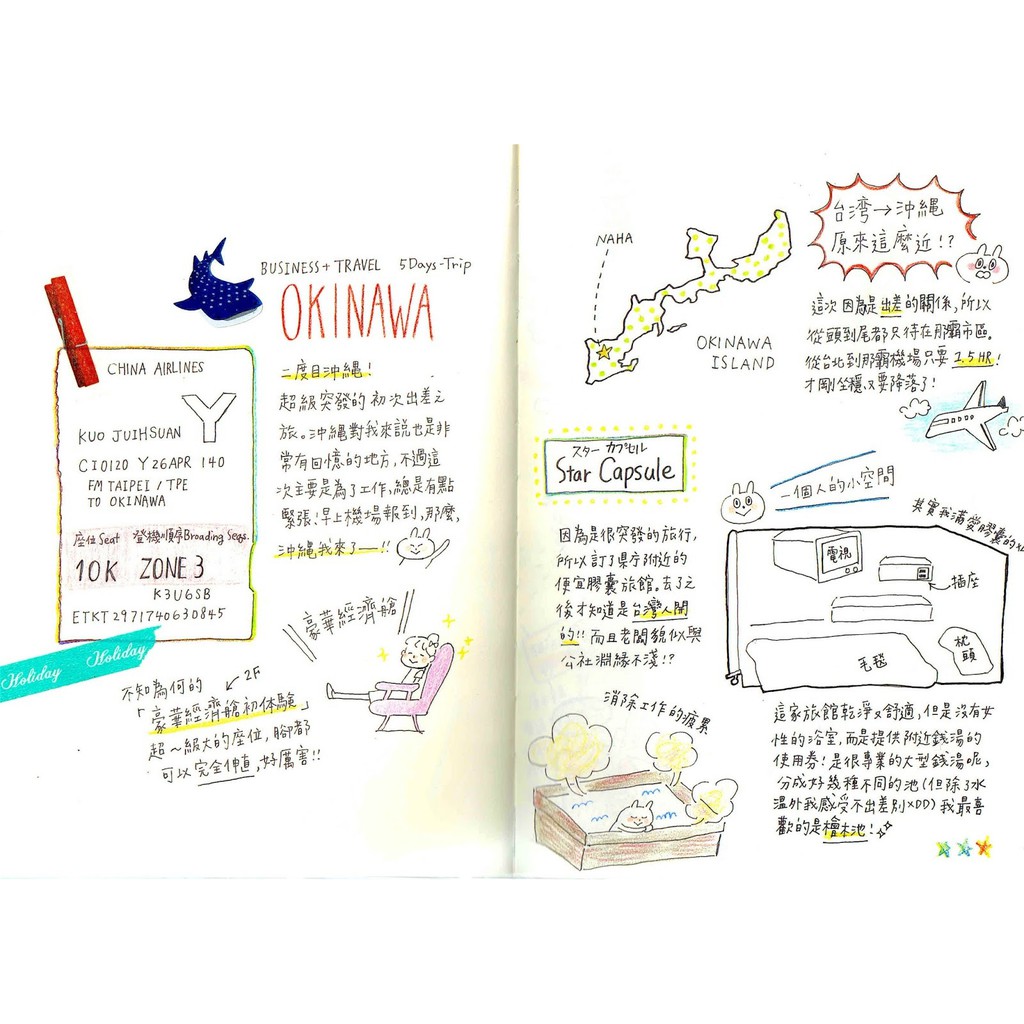 BUSINESS + TRAVEL 5Days-Trip
OKINAWA
CHINA AIRLINES
Y
KUO JUIHSUAN
CI0120 Y26APR 140
FM TAIPEI / TPE
TO OKINAWA
座位Seat 登機順序Broading Seqs.
10K ZONE 3
K3U6SB
ETKT2971740630845
Holiday Holiday
二度目沖縄!
超級突發的初次出差之
旅。沖縄對我來說也是非
常有回憶的地方,不過這
次主要是為了工作,總是有點
緊張!早上機場報到,那麼,
沖縄我來了——!!
豪華經濟艙
不知為何的
2F
「豪華經濟艙初体験」
超~級大的座位,腳都
可以完全伸直,好厲害!!
NAHA
OKINAWA
ISLAND
台湾→沖縄
原來這麼近!?
這次因為是出差的關係,所以
從頭到尾都只待在那霸市區。
從台北到那霸機場只要1.5HR!
才剛坐穩又要降落了!
スター カプセル
Star Capsule
因為是很突發的旅行,
所以訂了県庁附近的
便宜膠囊旅館。去了之
後才知道是台灣人開
的!!而且老闆貌似與
公社淵緣不淺!?
一個人的小空間
其實我滿愛膠囊的
電視
插座
毛毯
枕頭
消除工作的疲累
這家旅館乾淨又舒適,但是沒有女
性的浴室,而是提供附近銭湯的
使用券!是很專業的大型銭湯呢,
分成好幾種不同的池(但除了水
溫外我感受不出差別XDD)我最喜
歡的是檜木池!